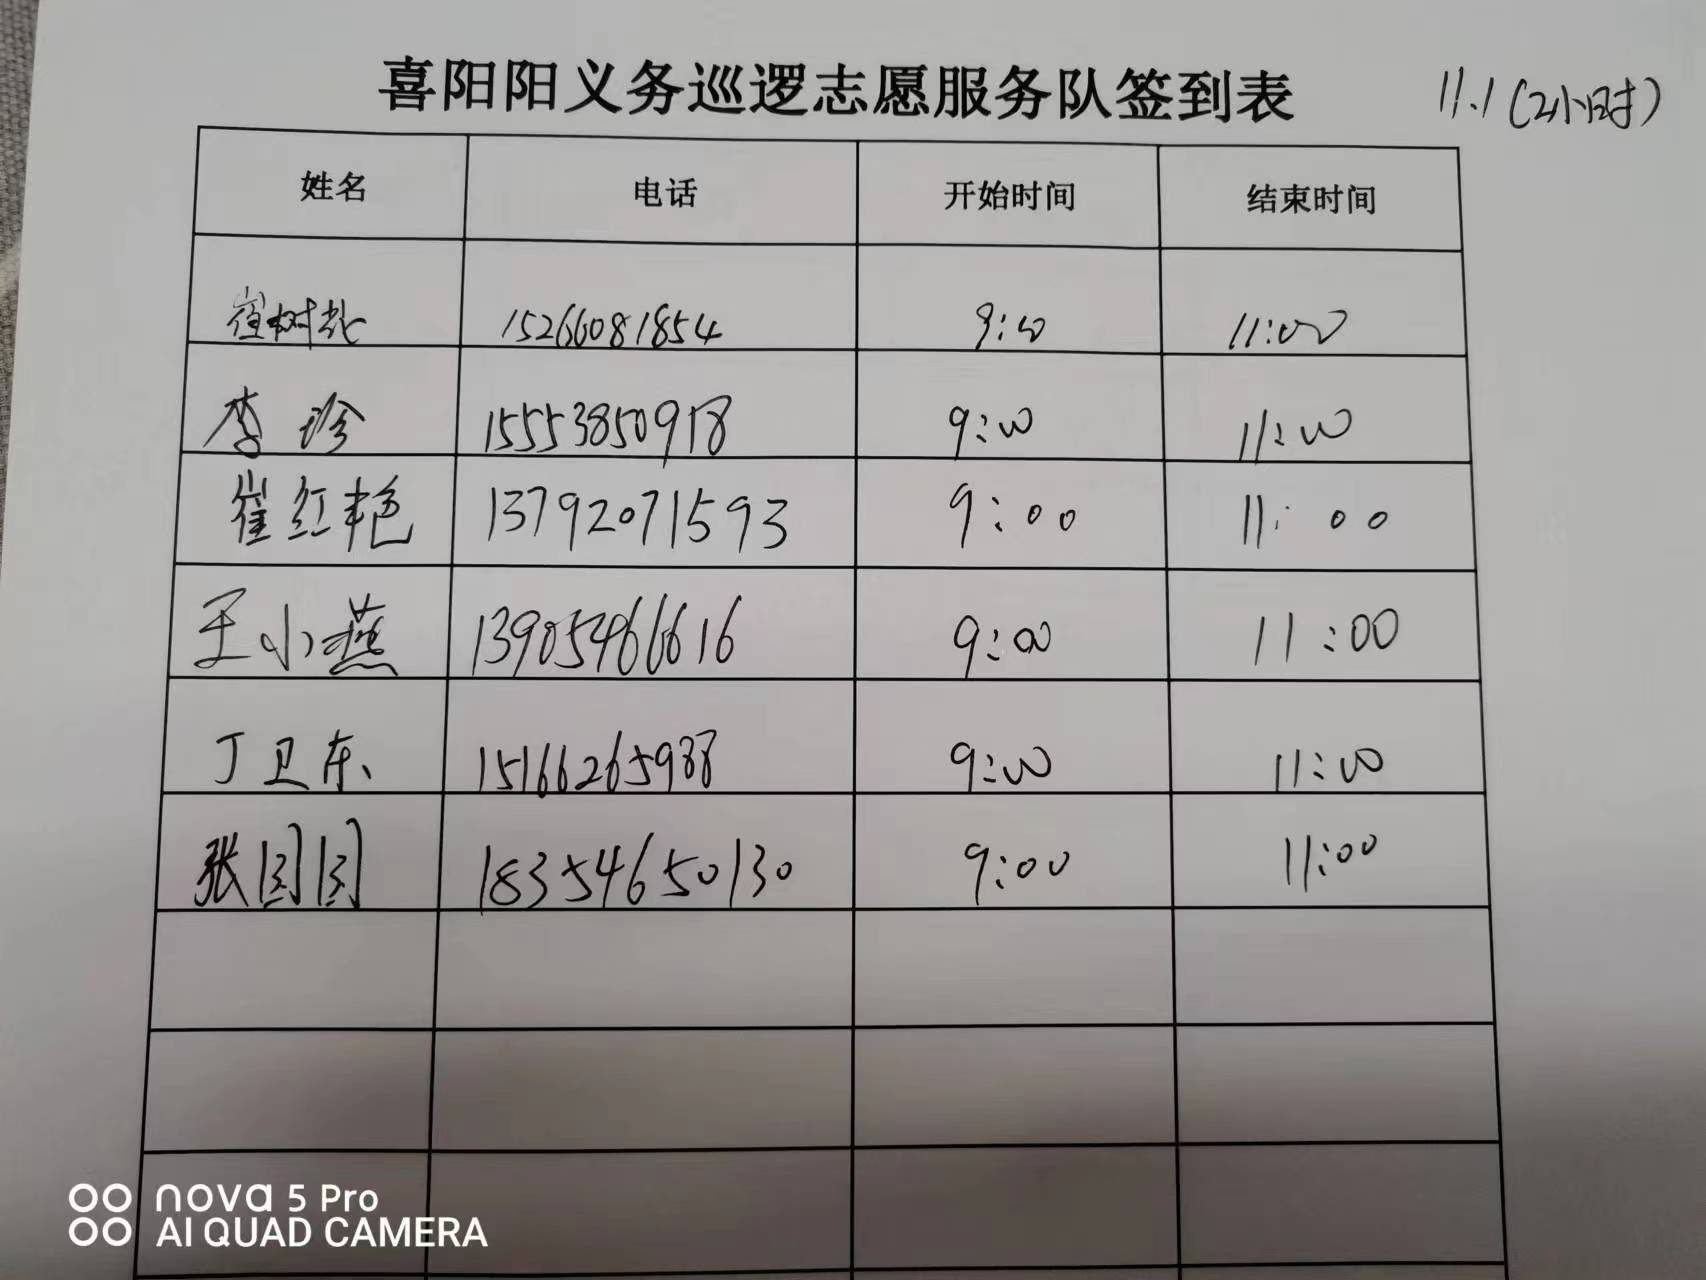 喜阳阳义务巡逻志愿服务队签到表 11.1(2小时)
姓名 电话 开始时间 结束时间
崔树 15266081854 9:00 11:00
李珍 15553850918 9:00 11:00
崔红艳 13792071593 9:00 11:00
王小燕 13905466616 9:00 11:00
丁卫东 15166265988 9:00 11:00
张团团 18354650130 9:00 11:00
nova 5 Pro
AI QUAD CAMERA